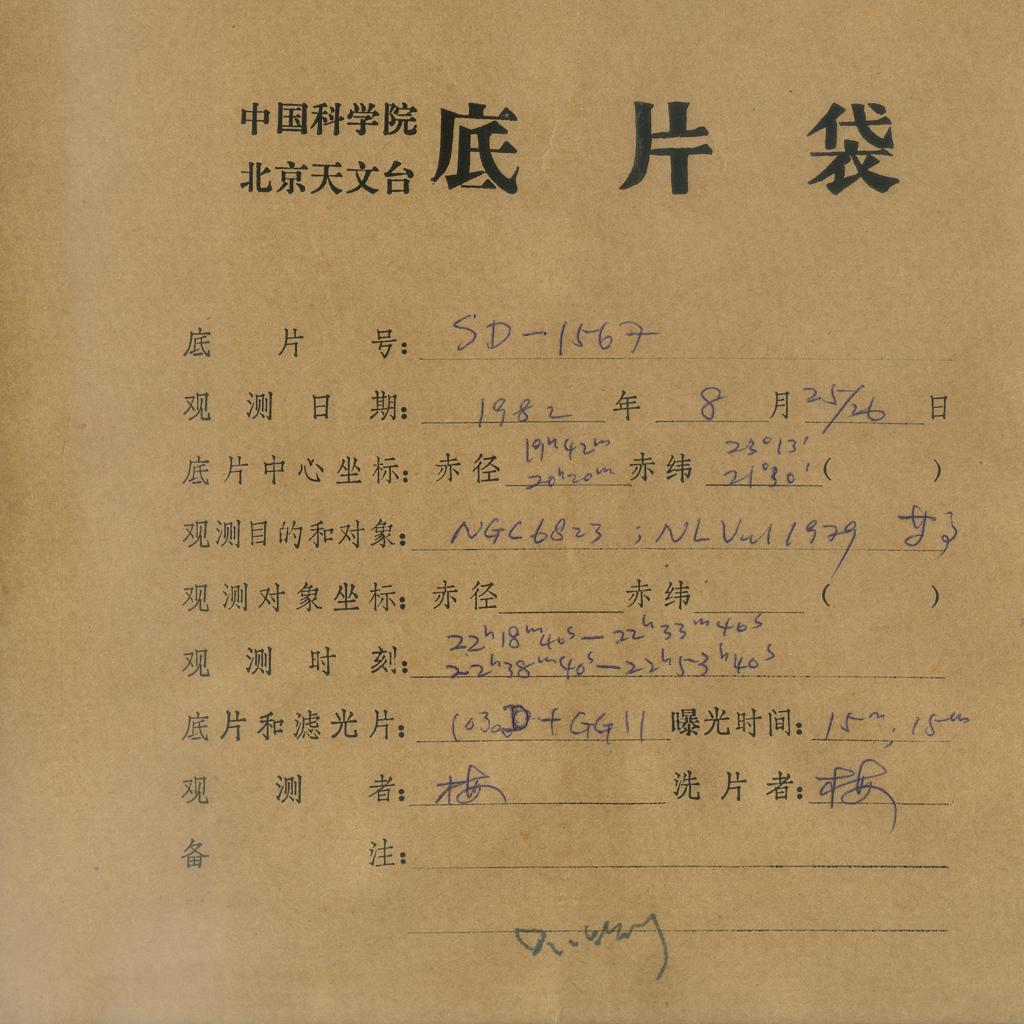 中国科学院
北京天文台
底片袋
底片号: SD-1567
观测日期: 1982 年 8 月 25/26 日
19ʰ42ᵐ 23°13′
底片中心坐标: 赤径 20ʰ20ᵐ 赤纬 21°30′ ( )
观测目的和对象: NGC6823 ; NLVul1979
观测对象坐标: 赤径 赤纬 ( )
22ʰ18ᵐ40ˢ—22ʰ33ᵐ40ˢ
观测时刻: 22ʰ38ᵐ40ˢ—22ʰ53ʰ40ˢ
底片和滤光片: 103aD+GG11 曝光时间: 15ᵐ; 15ᵐ
观测者: 梅 洗片者: 梅
备注: